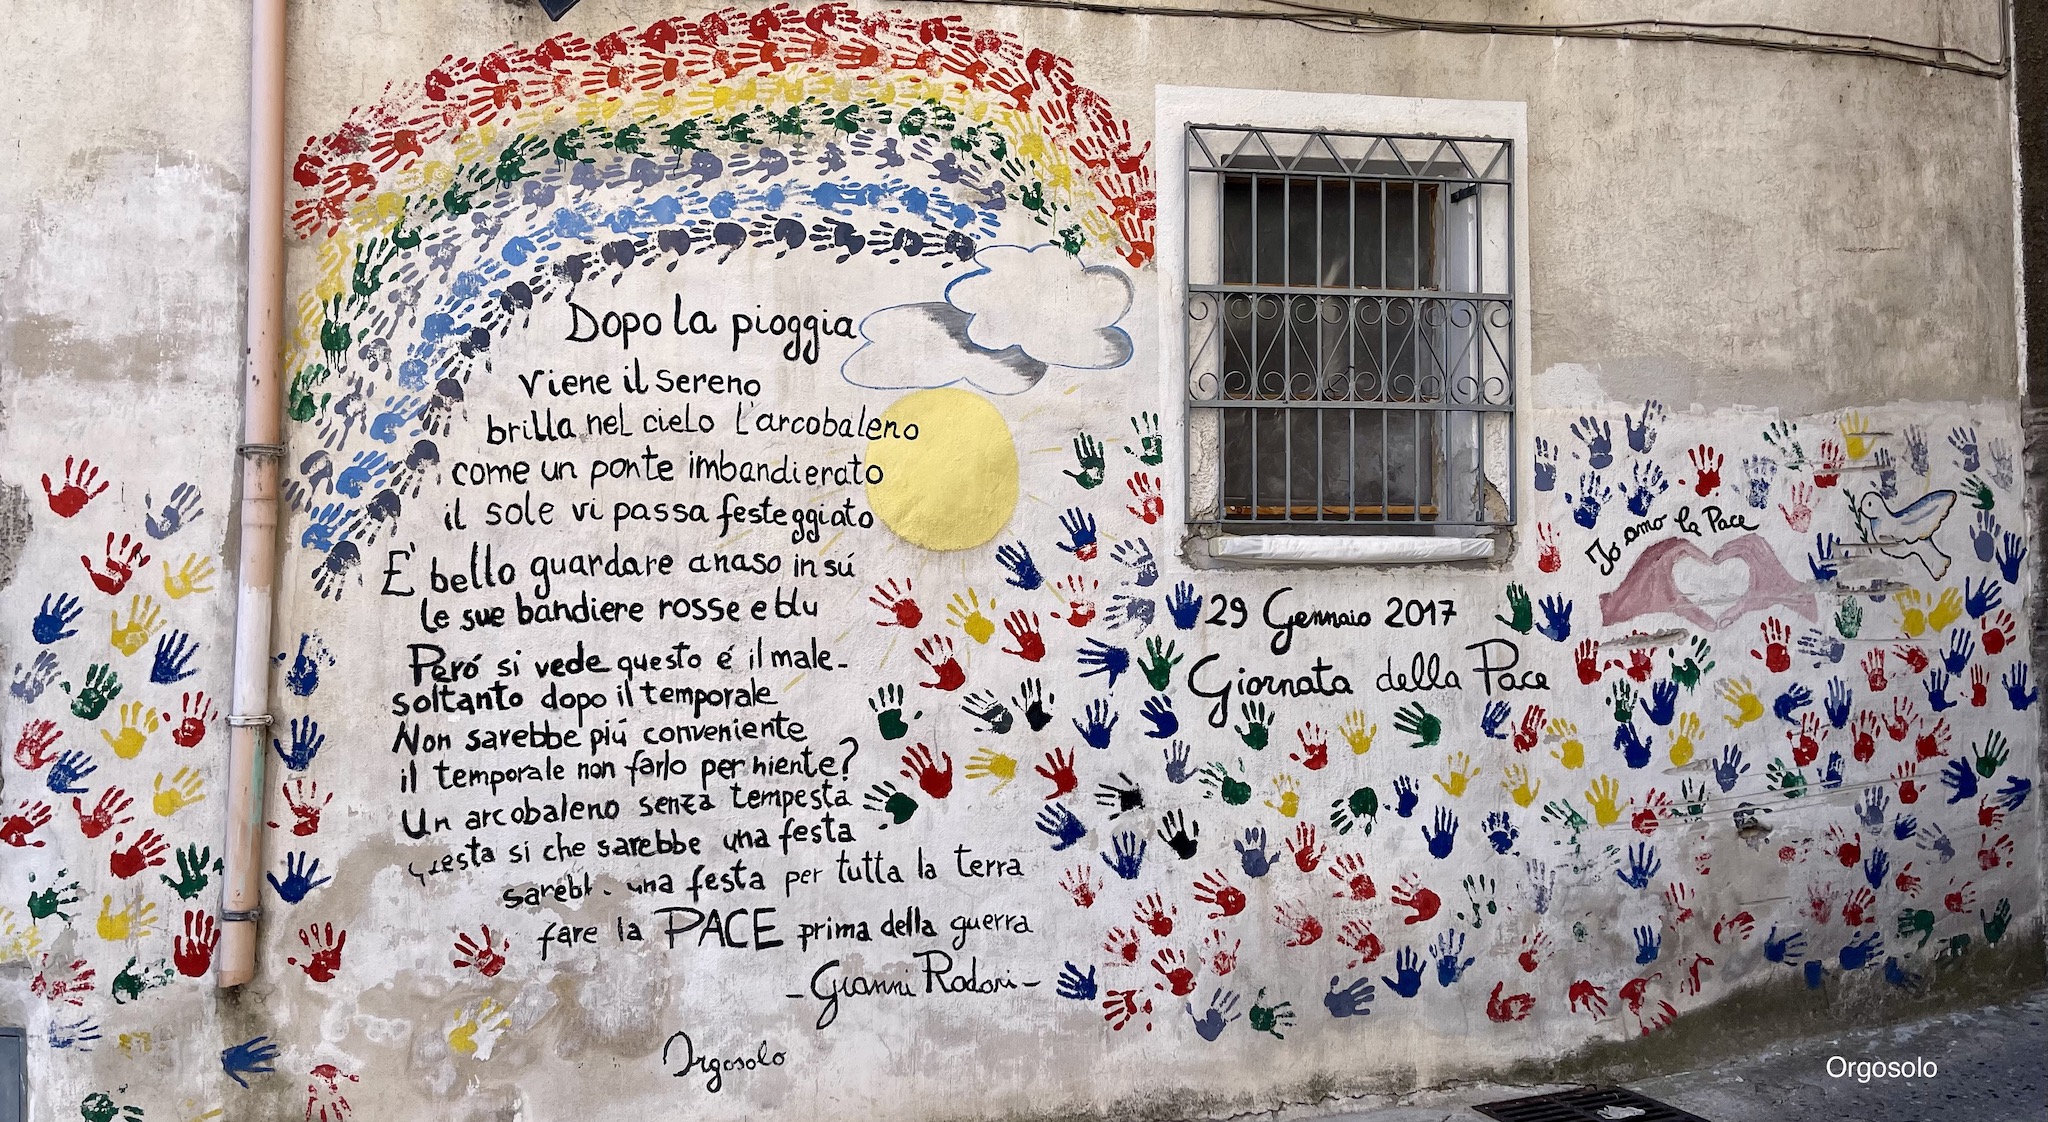 Dopo la pioggia
viene il sereno
brilla nel cielo l'arcobaleno
come un ponte imbandierato
il sole vi passa festeggiato
É bello guardare a naso in sú
le sue bandiere rosse e blu
Peró si vede questo é il male-
soltanto dopo il temporale
Non sarebbe piú conveniente
il temporale non farlo per niente?
Un arcobaleno senza tempesta
questa si che sarebbe una festa
una festa per tutta la terra
fare la PACE prima della guerra
- Gianni Rodari -
Orgosolo
29 Gennaio 2017
Giornata della Pace
Io amo la Pace
Orgosolo